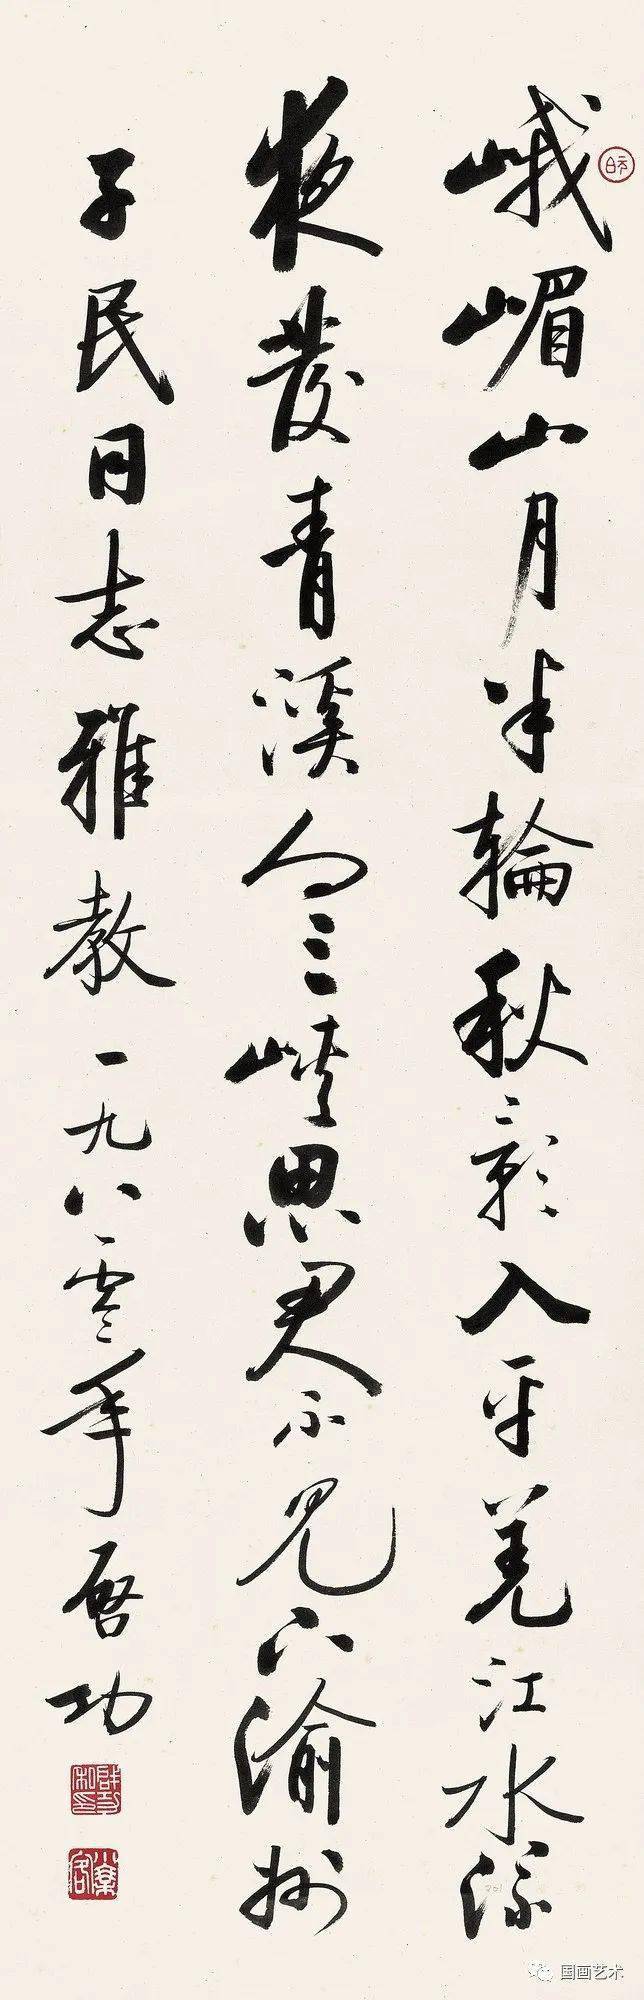 峨嵋山月半輪秋影入平羌江水流
夜發青溪向三峽思君不見下渝州
子民同志雅教一九八零年启功
国画艺术